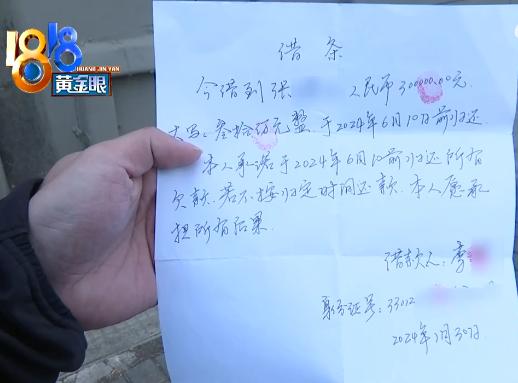 1818
HUANG JIN YAN
黄金眼
借条
今借到张 人民币300000.00元
大写:叁拾万元整.于2024年6月10日前归还
本人承诺于2024年6月10前归还所有
欠款.若不按归定时间还款.本人愿承
担所有后果.
借款人:李
身份证号:33012
2024年1月30日